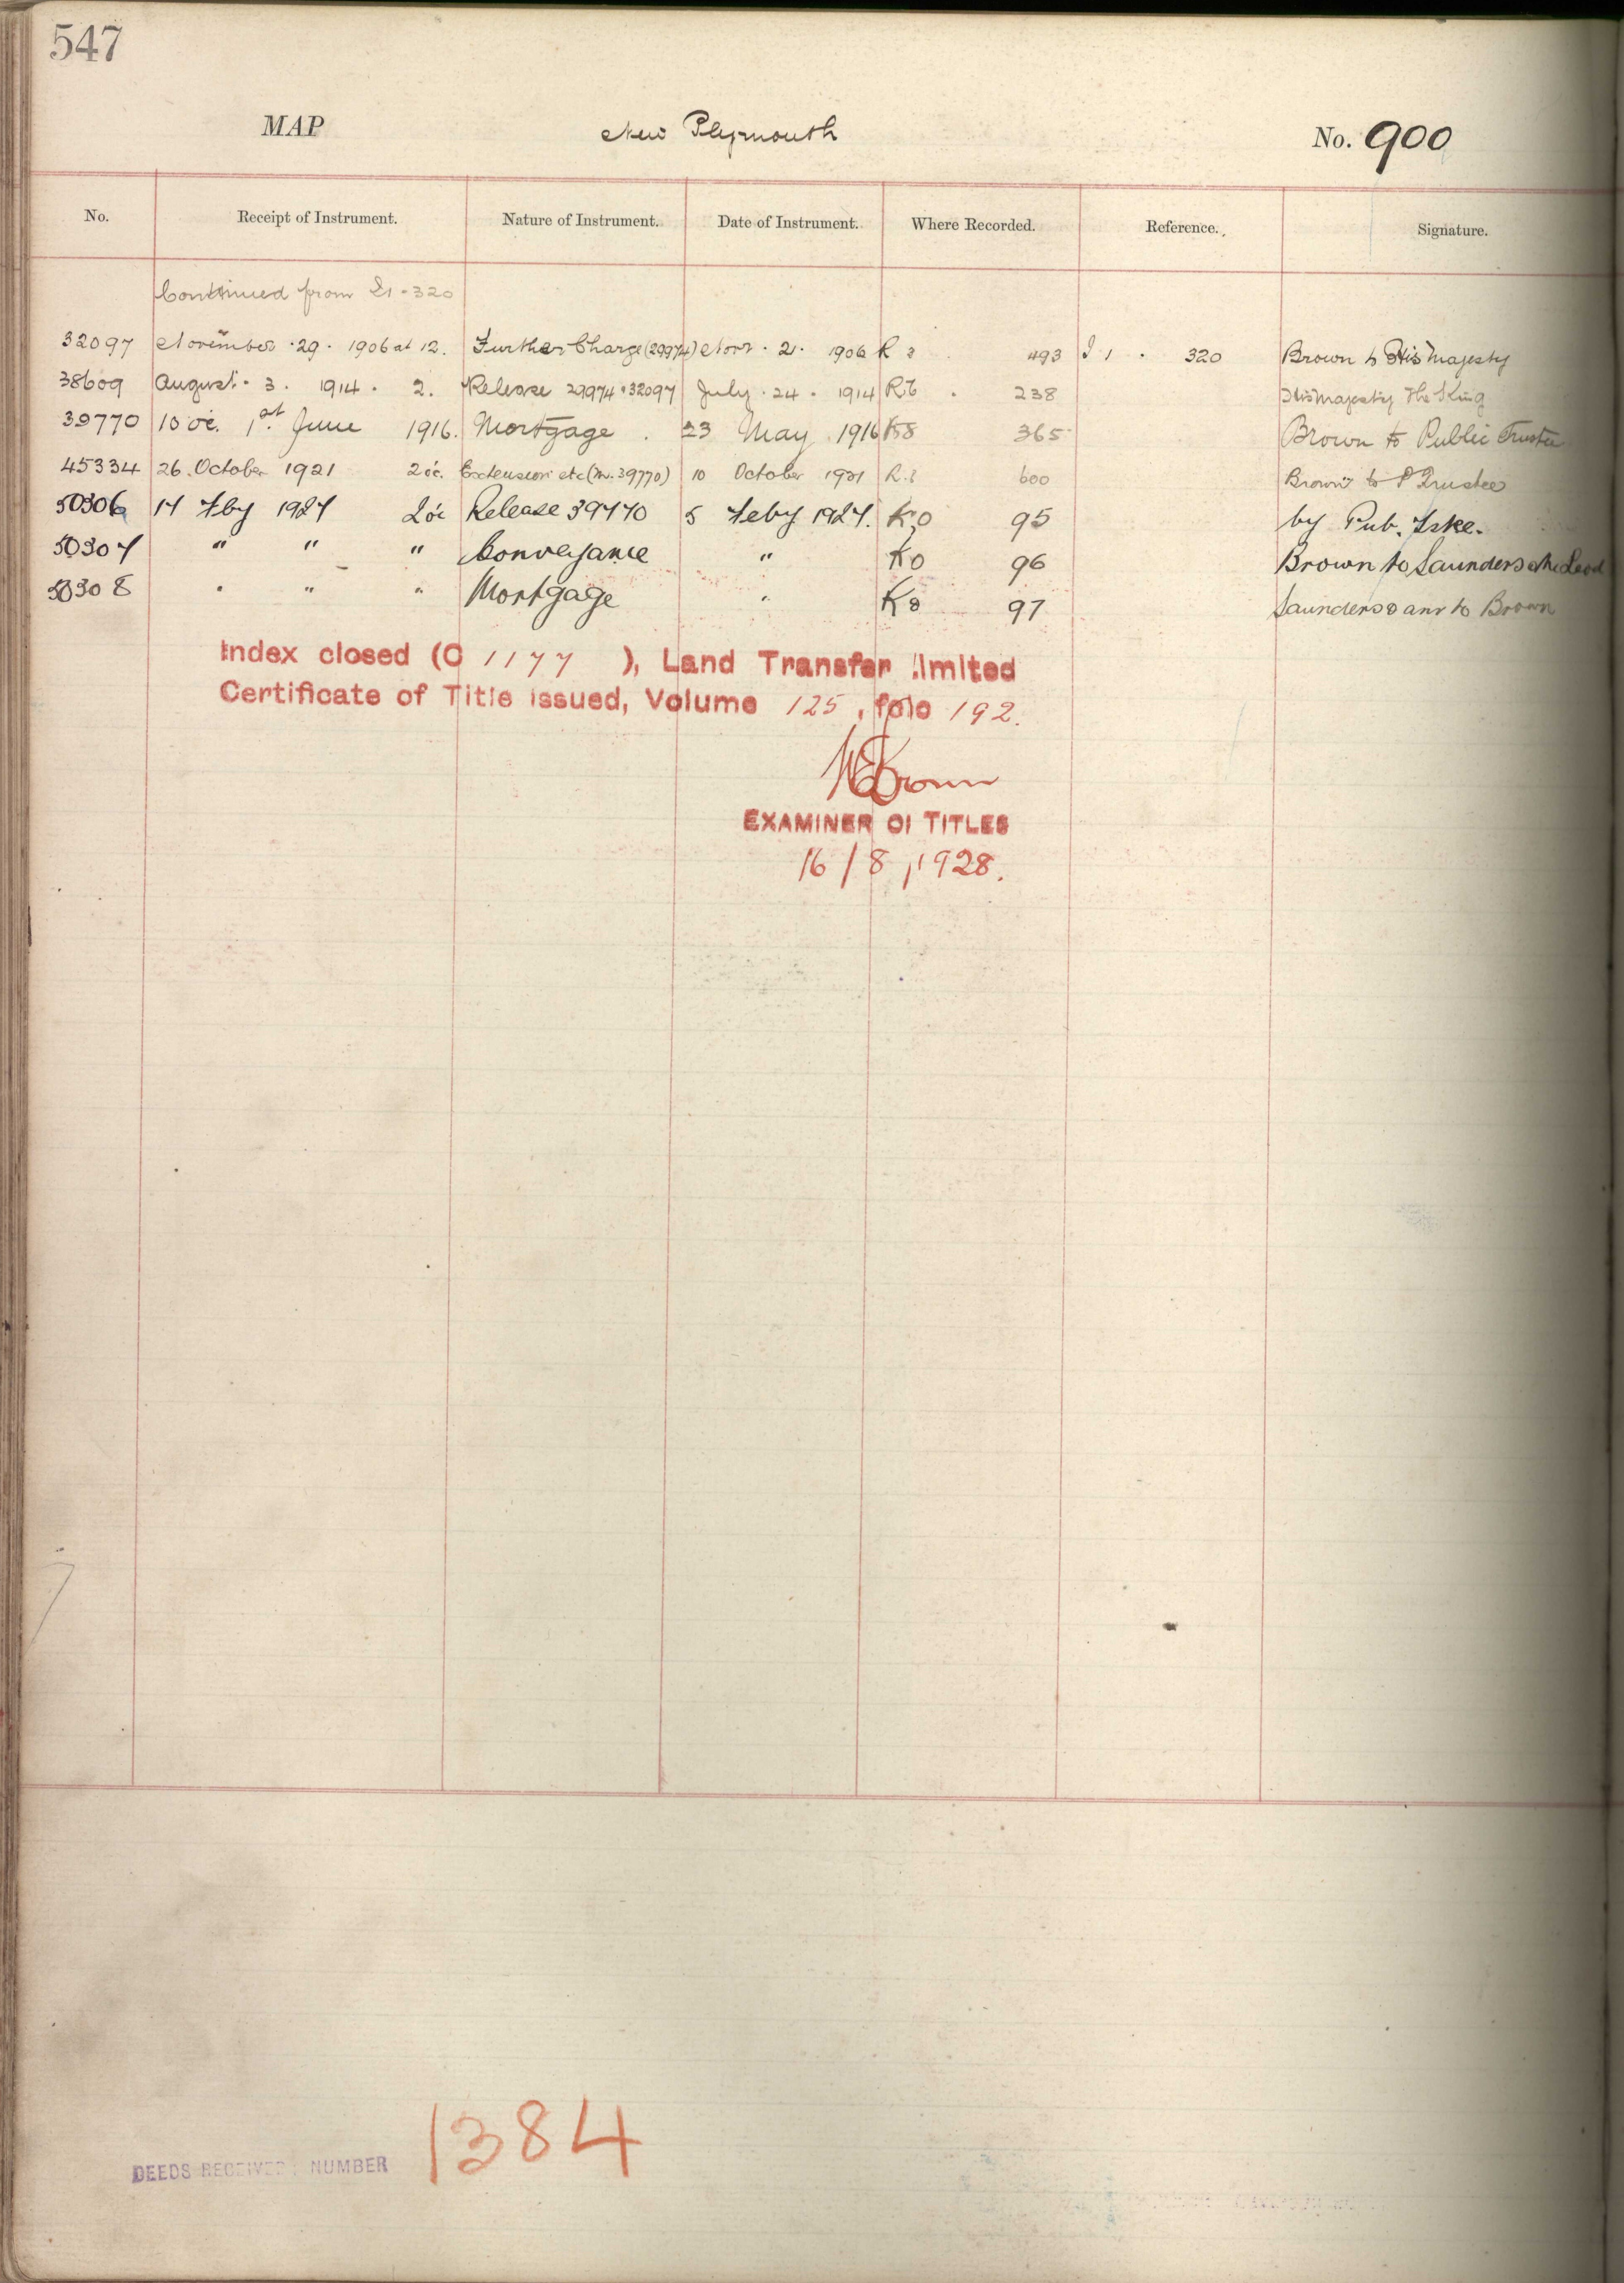 547
MAP New Plymouth No. 900
No. Receipt of Instrument. Nature of Instrument. Date of Instrument. Where Recorded. Reference. Signature.
Continued from I1 - 320
32097 November · 29 · 1906 at 12. Further Charge (29974) Novr · 21 · 1906 R 3 493 I 1 · 320 Brown to His Majesty
38609 August · 3 · 1914 · 2. Release 29974 & 32097 July · 24 · 1914 R6 · 238 His Majesty The King
39770 10 oc. 1st June 1916. Mortgage . 23 May 1916 R8 365 Brown to Public Trustee
45334 26. October 1921 2 oc. Extension etc (M. 39770) 10 October 1921 600 Brown to P Trustee
50306 17 Fby 1927 2 oc Release 39770 5 Feby 1927. 95 by Pub. Tstee.
50307 " " " Conveyance " 96 Brown to Saunders & McLeod
50308 " " " Mortgage " 97 Saunders & anr to Brown
Index closed (C 1177 ), Land Transfer limited
Certificate of Title issued, Volume 125, folio 192.
Brown
EXAMINER OF TITLES
16/8/1928.
DEEDS RECEIVED NUMBER 1384